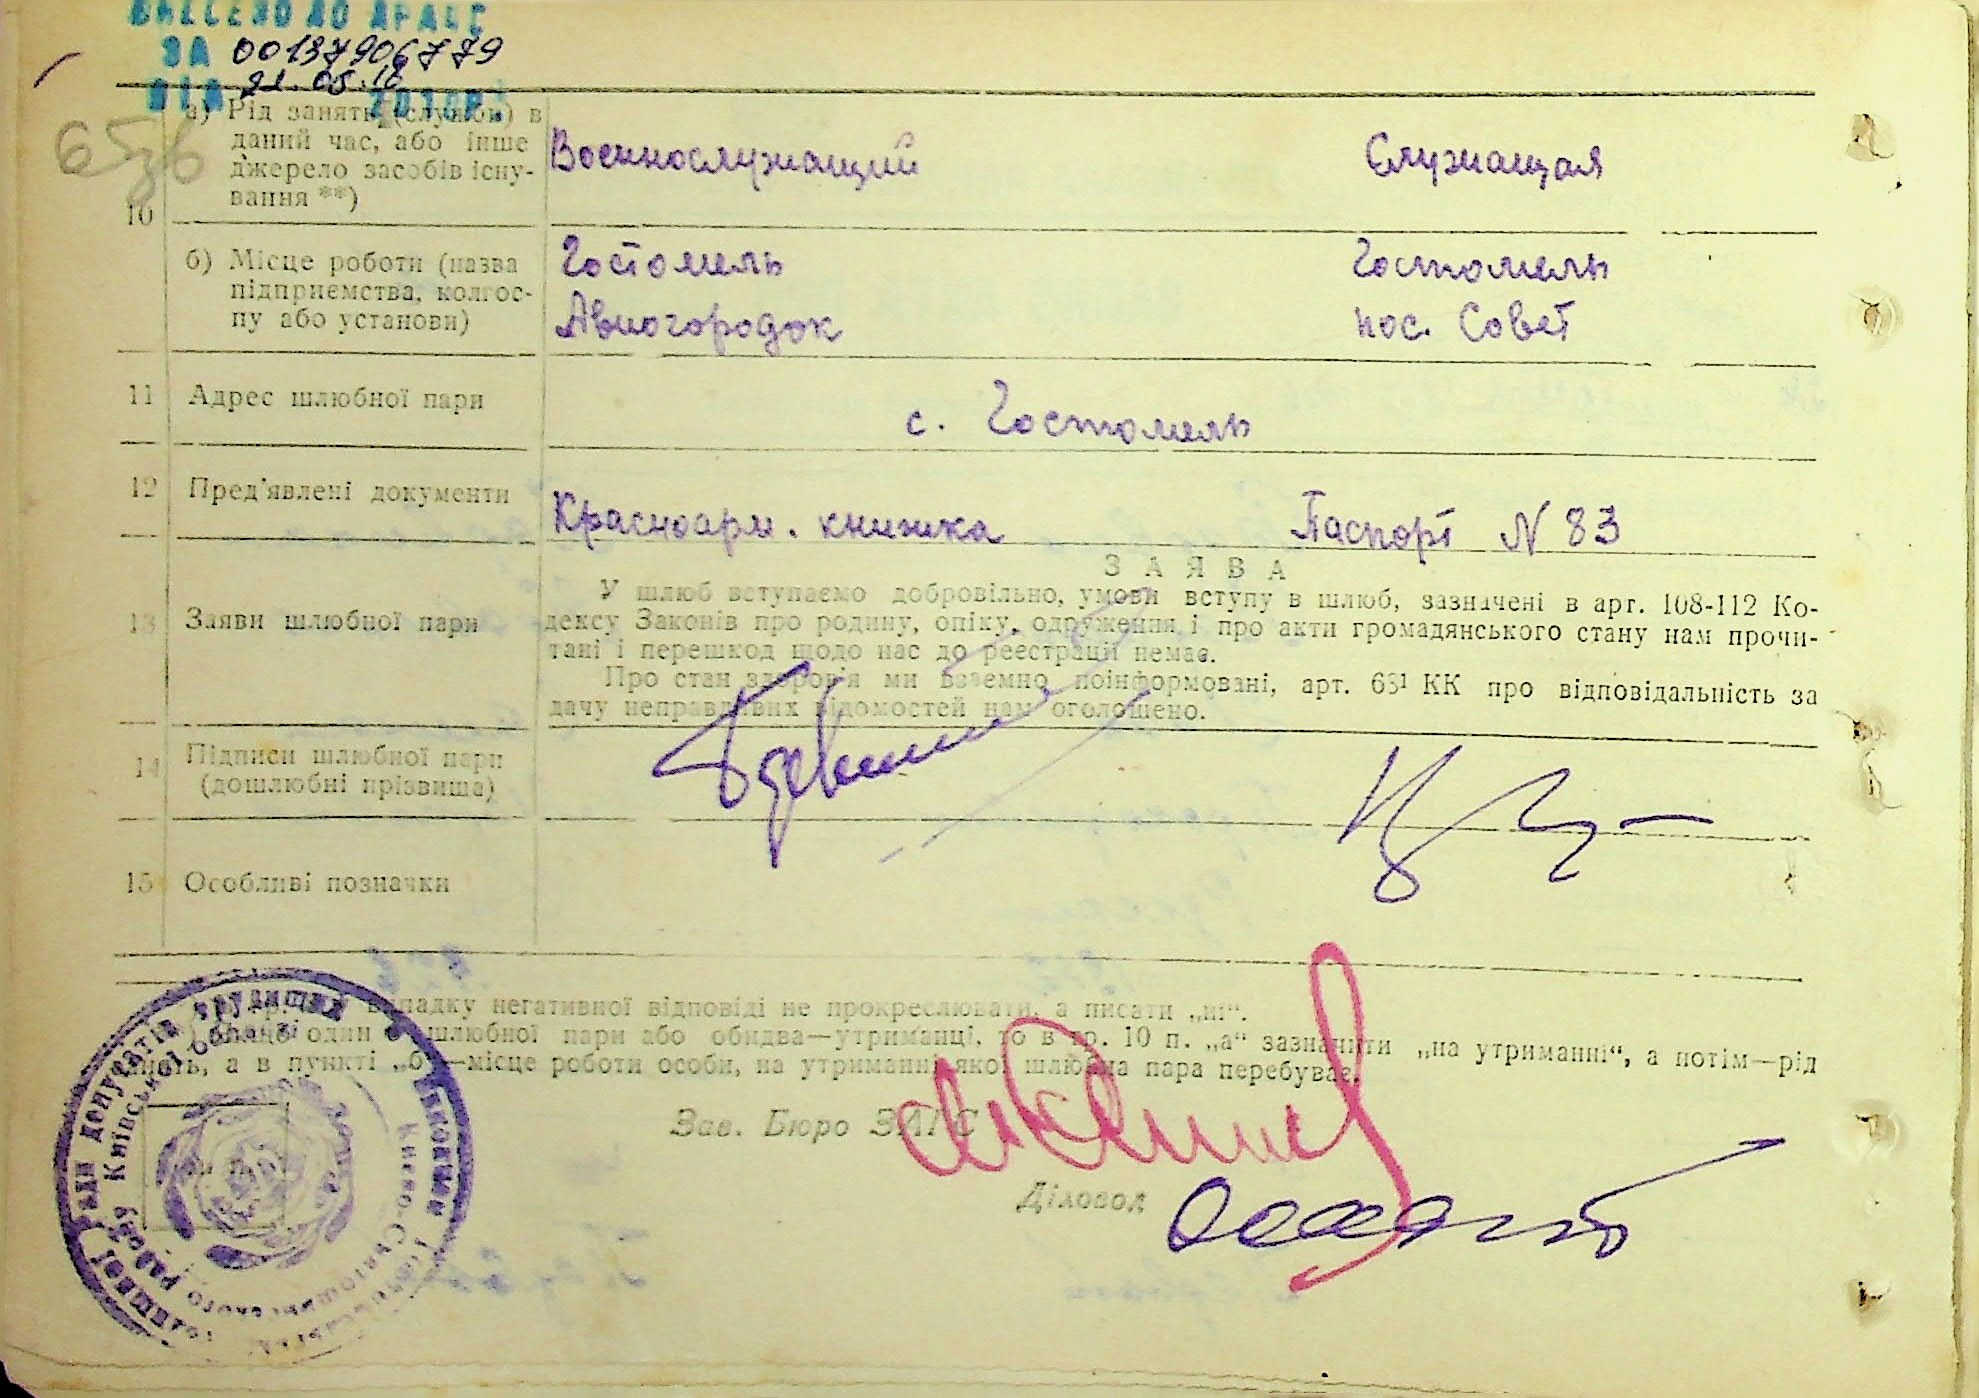 ВНЕСЕНО ДО ДРАЦС
ЗА 00137906779
ВІД 21.05.16 201 Р.
10
а) Рід занять (служби) в
даний час, або інше
джерело засобів існу-
вання **)
Военнослужащий
Служащая
б) Місце роботи (назва
підприємства, колгос-
пу або установи)
Гостомель
Авиогородок
Гостомель
пос. Совет
11 Адрес шлюбної пари
с. Гостомель
12 Пред'явлені документи
Красноарм. книжка
Паспорт N 83
13 Заяви шлюбної пари
ЗАЯВА
У шлюб вступаємо добровільно, умови вступу в шлюб, зазначені в арт. 108-112 Ко-
дексу Законів про родину, опіку, одруження і про акти громадянського стану нам прочи-
тані і перешкод щодо нас до реєстрації немає.
Про стан здоров'я ми взаємно поінформовані, арт. 63¹ КК про відповідальність за
дачу неправдивих відомостей нам оголошено.
14 Підписи шлюбної пари
(дошлюбні прізвища)
15 Особливі позначки
випадку негативної відповіді не прокреслювати, а писати „ні“.
один з шлюбної пари або обидва—утриманці, то в гр. 10 п. „а“ зазначити „на утриманні“, а потім—рід
занять, а в пункті „б“—місце роботи особи, на утриманні якої шлюбна пара перебуває.
Зав. Бюро ЗАГС
Діловод
Виконком Гостомельської селищної Ради депутатів трудящих
Києво-Святошинського району Київської області